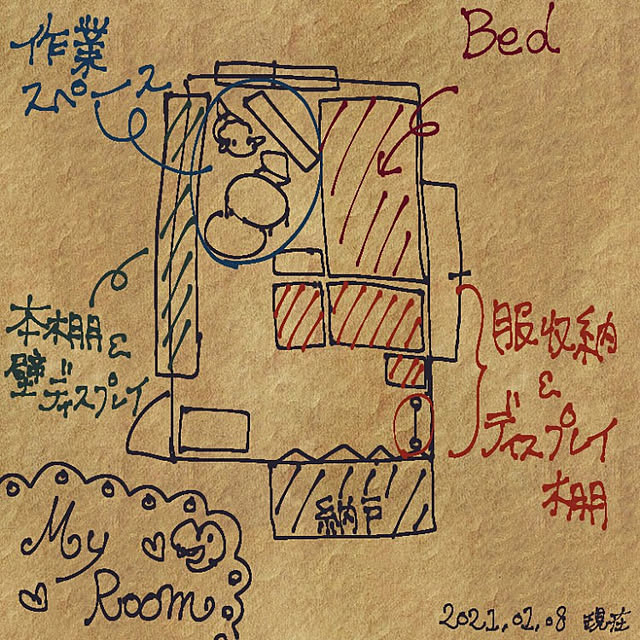 作業
スペース
Bed
本棚&
壁ディスプレイ
服収納
&
ディスプレイ
棚
納戸
My
Room
2021.01.08 現在